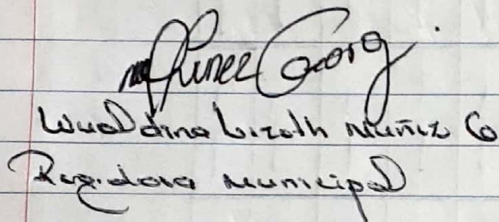 Wualdina Lizeth Muñiz G
Regidora Municipal